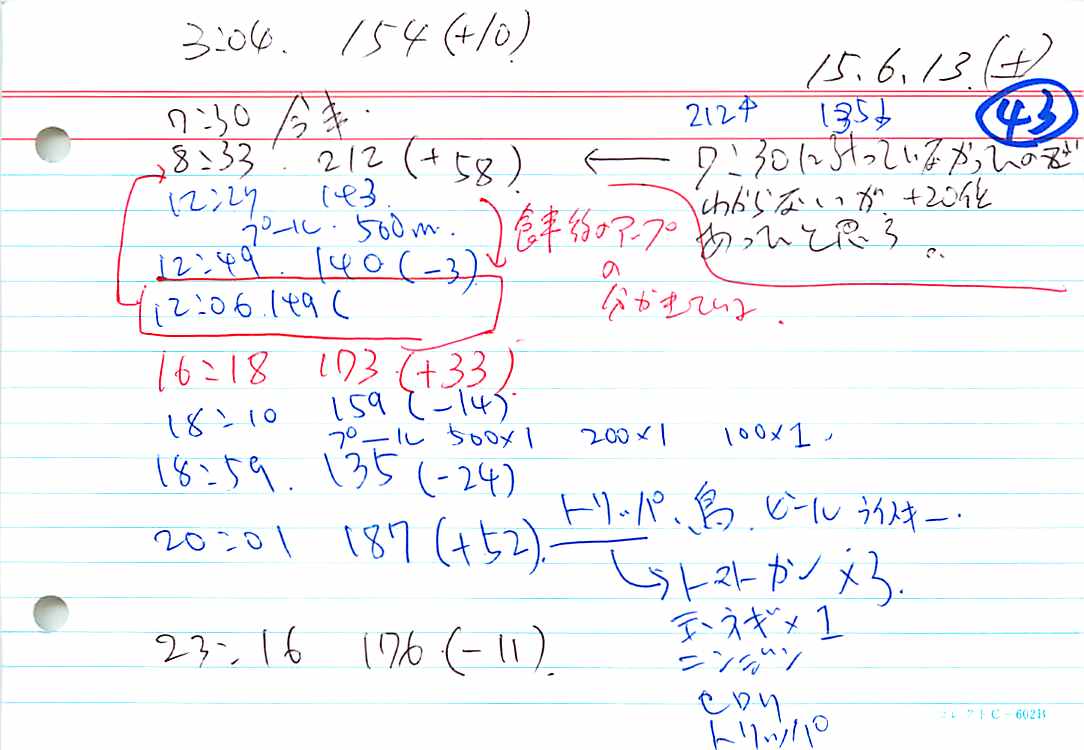 3:04. 154 (+10)
15.6.13.(土)
212↑ 135↓ 43
7:30 今朝.
8:33. 212 (+58) ← 7:30に計っていなかったので
わからないが、+20位
あったと思う。
12:27 143.
プール. 500m.
12:49. 140 (-3)
食事分のアップ
の
分がきている.
12:06. 149 (
16:18 173 (+33)
18:10 159 (-14)
プール 500×1 200×1 100×1.
18:59. 135 (-24)
20:01 187 (+52). トリッパ、鳥. ビール
→トマトカン×3.
玉ネギ×1
ニンジン
セロリ
トリッパ
23:16 176 (-11).
コレクト C-602B